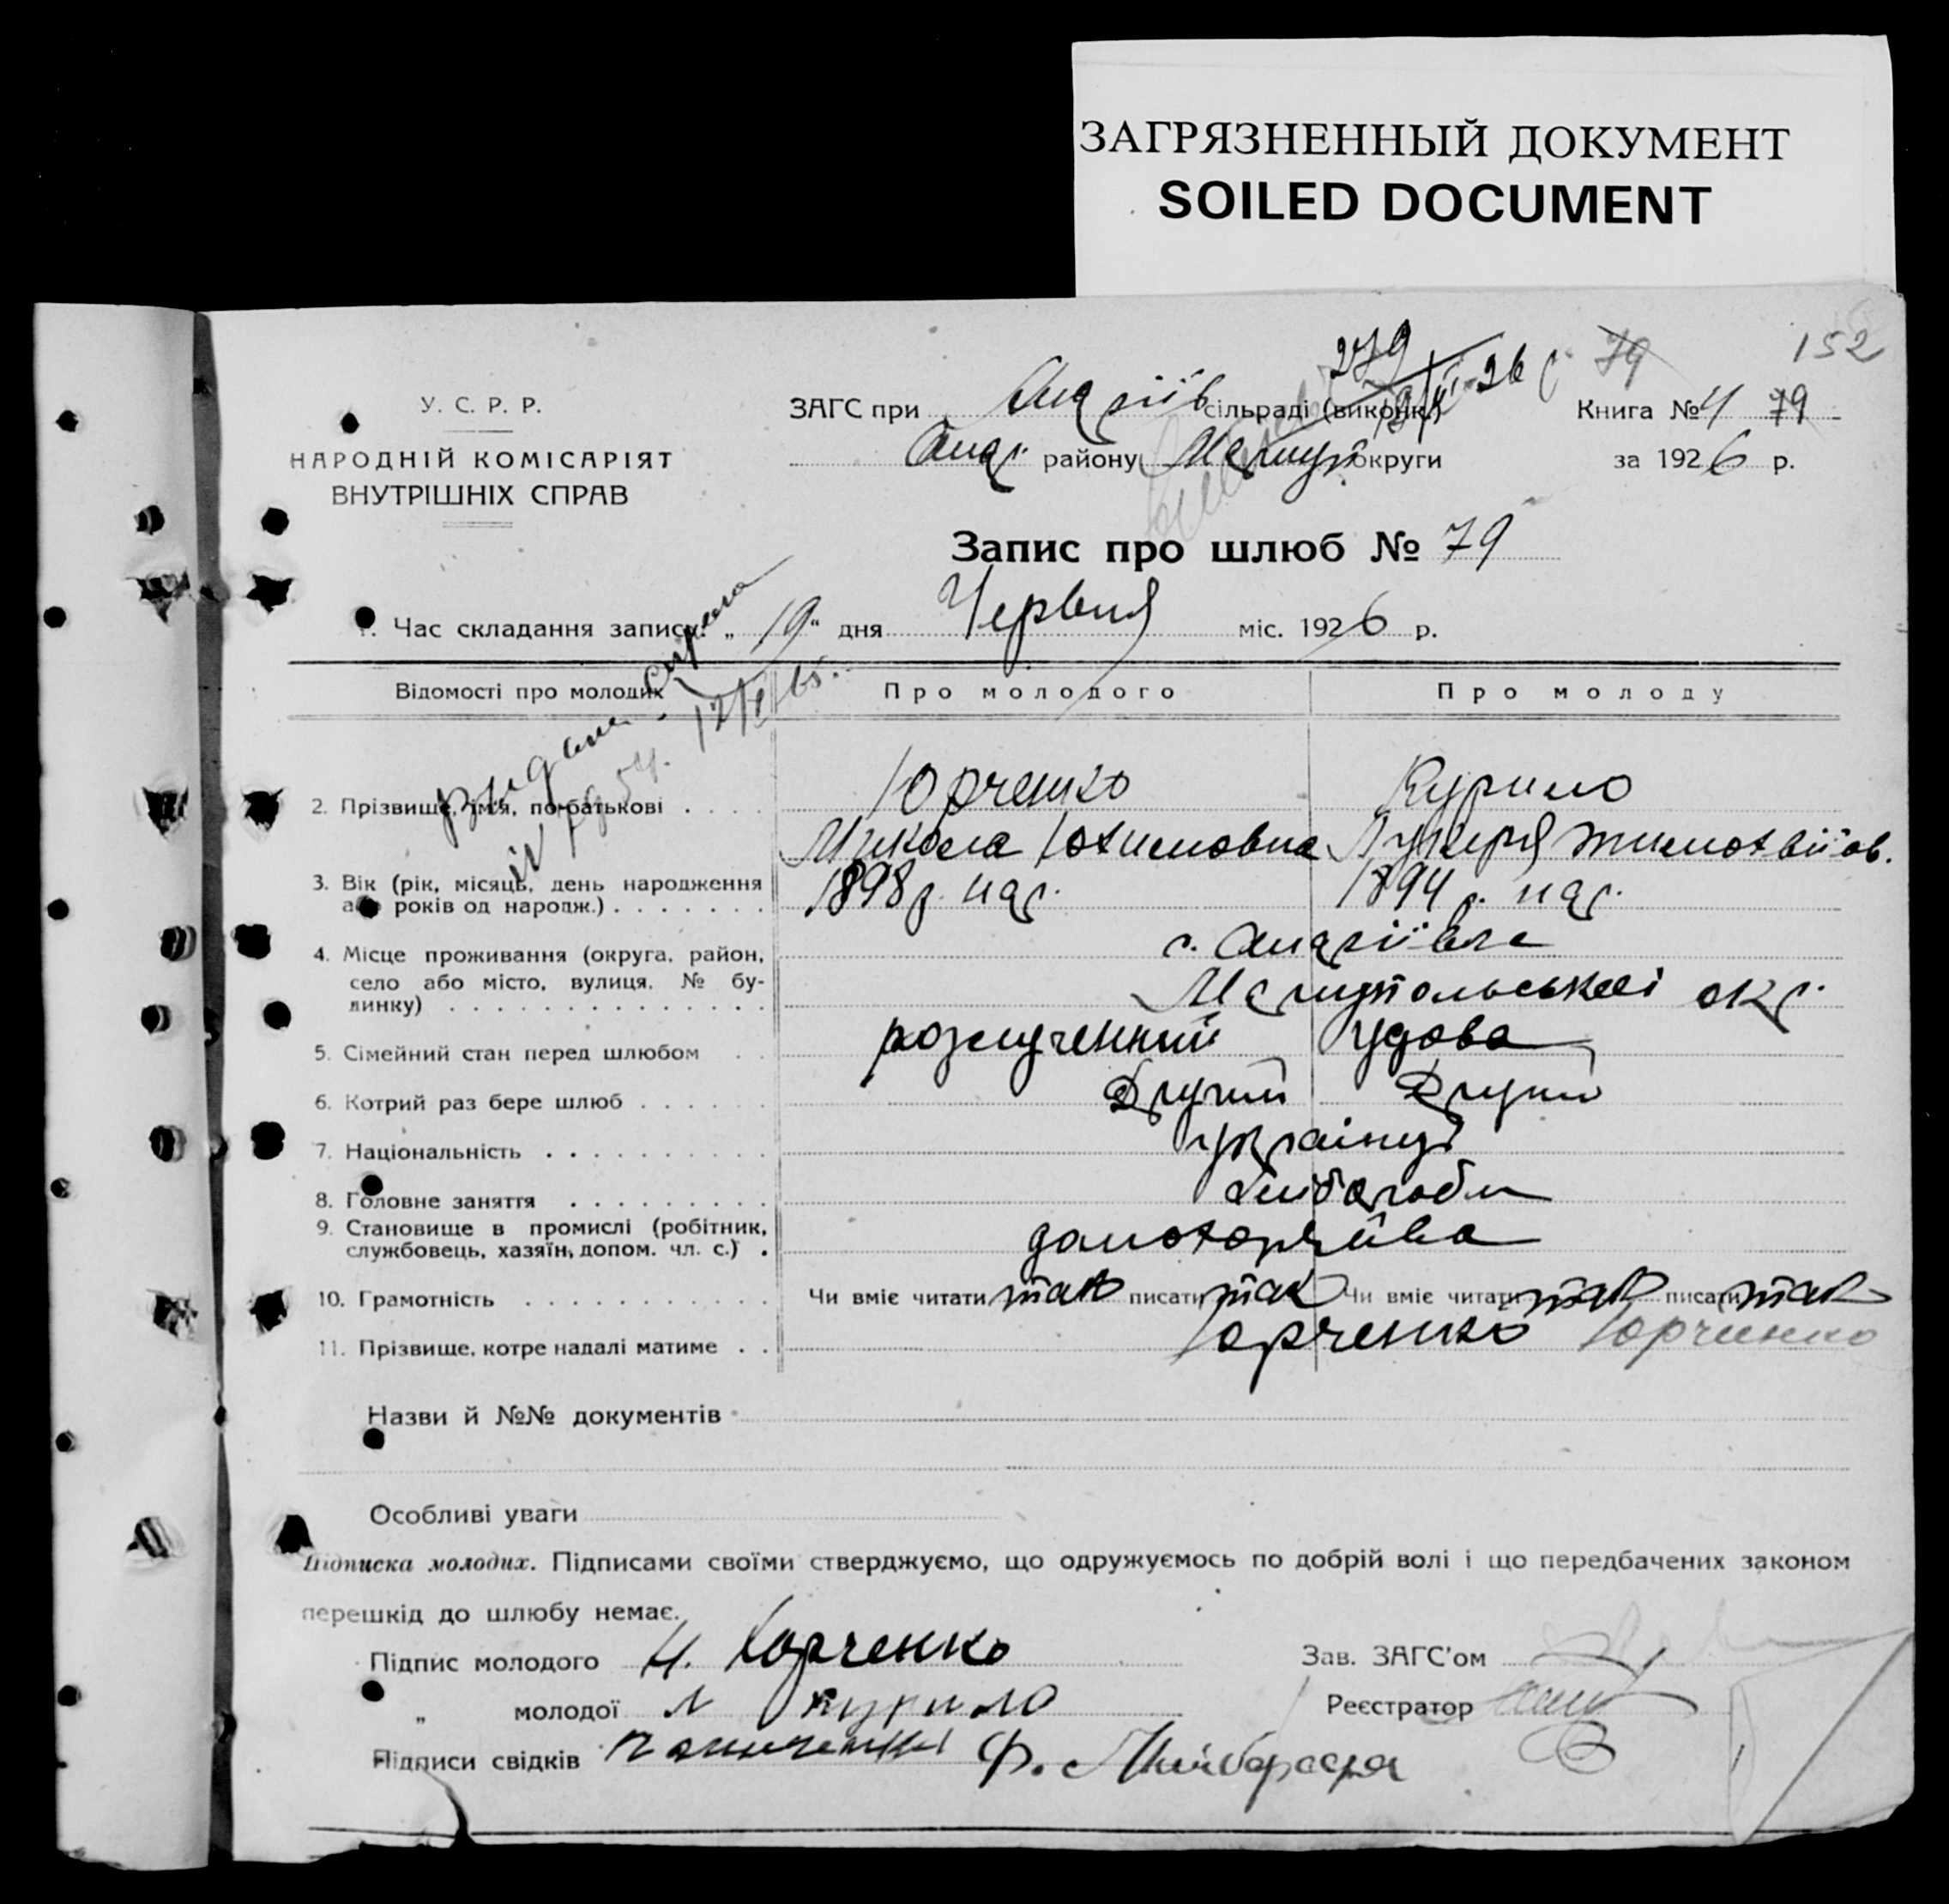 ЗАГРЯЗНЕННЫЙ ДОКУМЕНТ
SOILED DOCUMENT
152
279
79
У. С. Р. Р.
НАРОДНІЙ КОМІСАРІЯТ
ВНУТРІШНІХ СПРАВ
ЗАГС при Андріїв сільраді (виконк.)
Книга № 4 79
Андр. району Маріуп. округи
за 1926 р.
Запис про шлюб № 79
1. Час складання запису: „19“ дня Червня міс. 1926 р.
Відомості про молодих
Про молодого
Про молоду
2. Прізвище, ім'я, по-батькові
Юрченко
Курило
Микола Юхимовна
Лукерья Тимохвіїов.
3. Вік (рік, місяць, день народження
або років од народж.)
1898 р. нар.
1894 р. нар.
4. Місце проживання (округа, район,
село або місто, вулиця, № бу-
динку)
с. Андріївка
Маріупольської окр.
5. Сімейний стан перед шлюбом
розлученний
удова
6. Котрий раз бере шлюб
Другий
Другий
7. Національність
українці
8. Головне заняття
хліборобл
9. Становище в промислі (робітник,
службовець, хазяїн, допом. чл. с.)
домохозяйва
10. Грамотність
Чи вміє читати так писати так
Чи вміє читати так писати так
11. Прізвище, котре надалі матиме
Юрченко
Юрченко
Назви й №№ документів
Особливі уваги
Підписка молодих. Підписами своїми стверджуємо, що одружуємось по добрій волі і що передбачених законом
перешкід до шлюбу немає.
Підпис молодого Н. Юрченко
Зав. ЗАГС'ом
„ молодої Л Курило
Реєстратор
Підписи свідків Ф.